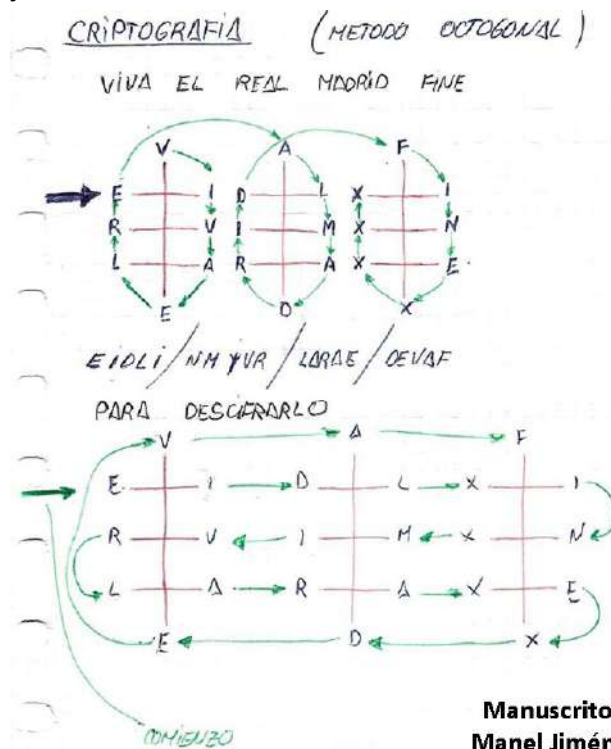 CRIPTOGRAFIA (METODO OCTOGONAL)
VIVA EL REAL MADRID FINE
V A F
E I D L X I
R V I M X N
L A R A X E
E D X
EIDLI/NMYVR/LARAE/DEVAF
PARA DESCIFRARLO
V A F
E I D L X I
R V I M X N
L A R A X E
E D X
COMIENZO
Manuscrito
Manel Jimén